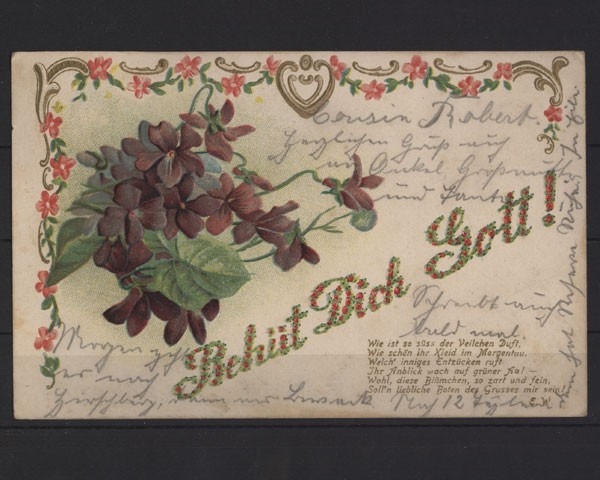 Cousin Robert.
Herzlichen Gruß auch
an Onkel, Großmutter
und Tante
Behüt Dich Gott!
Schreibt auch
bald mal.
Wie ist so süss der Veilchen Duft,
Wie schön ihr Kleid im Morgentau.
Welch' inniges Entzücken ruft
Ihr Anblick wach auf grüner Au! —
Wohl, diese Blümchen, so zart und fein,
Soll'n liebliche Boten des Grusses mir sein!
E. W.
Morgen geht
es nach
Hirschberg, wenn
12